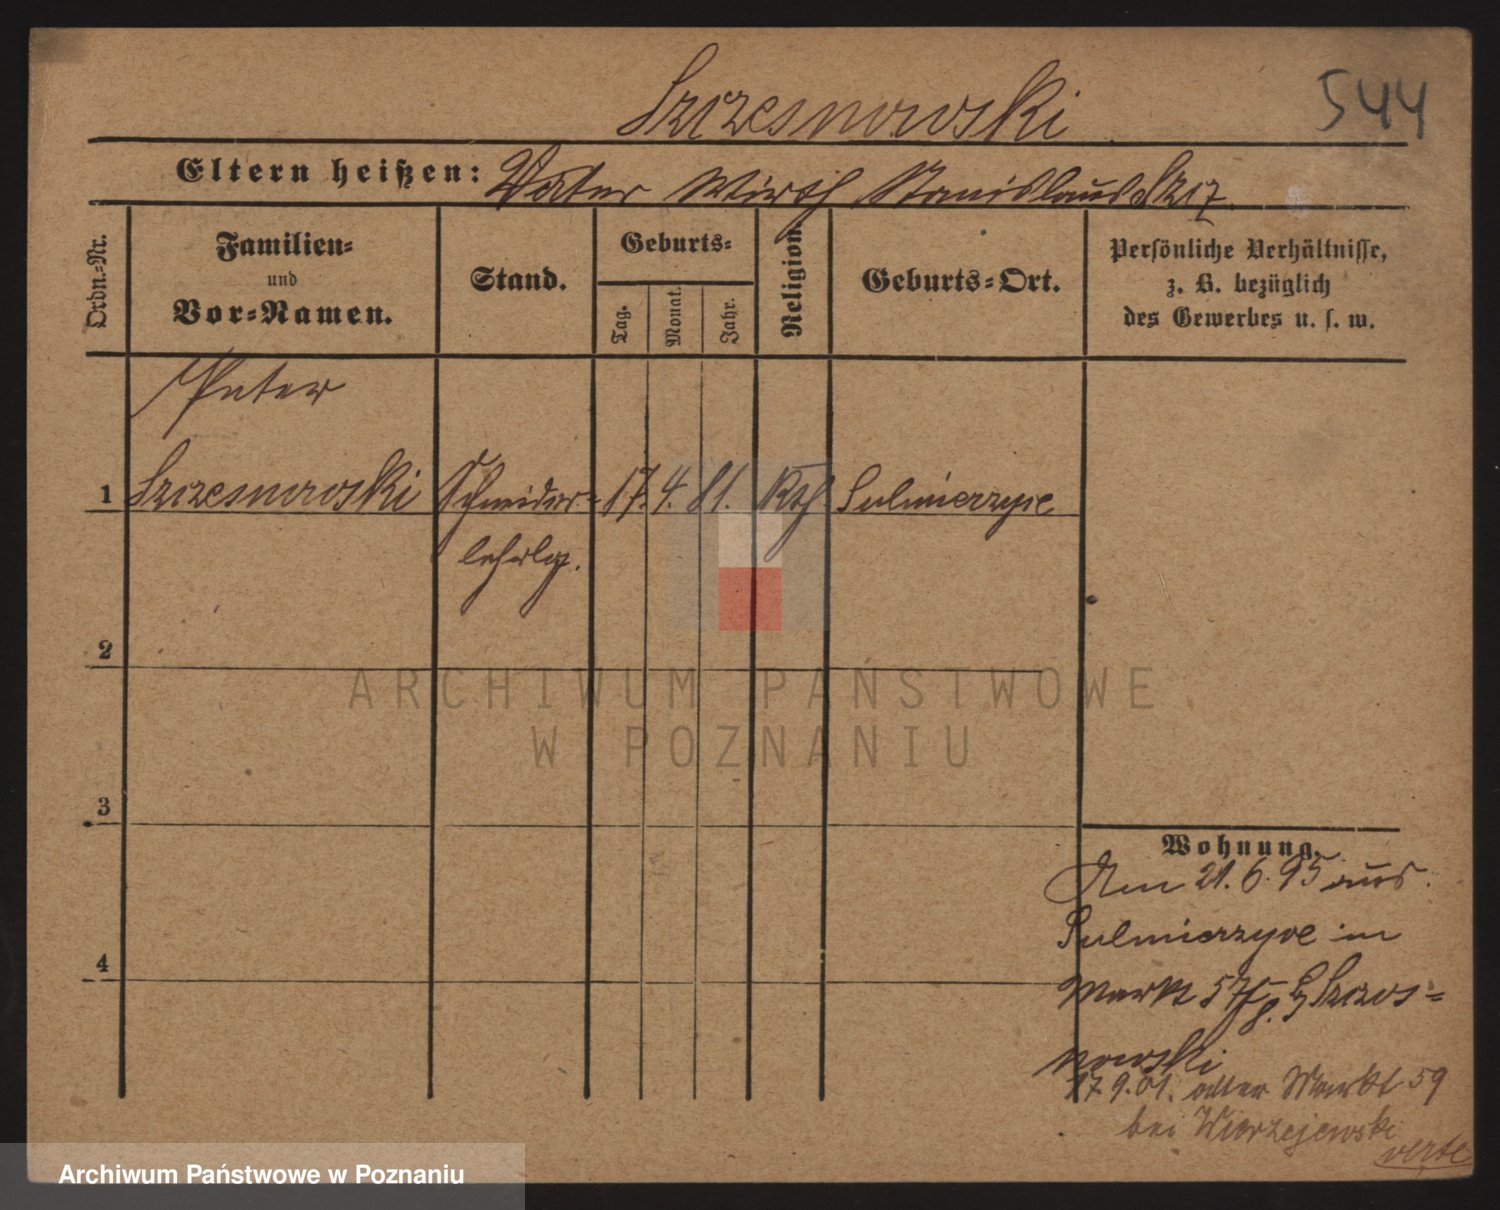 Szczesnowski
544
Eltern heißen: Vater Wirth Stanislaus Szcz.
Ordn.-Nr.
Familien-
und
Vor-Namen.
Stand.
Geburts-
Tag.
Monat.
Jahr.
Religion
Geburts-Ort.
Persönliche Verhältnisse,
z. B. bezüglich
des Gewerbes u. s. w.
Peter
1 Szczesnowski Schneider- 17. 4. 81. Kth Sulmierzyce
lehrlg.
2
3
4
ARCHIWUM PAŃSTWOWE
W POZNANIU
Wohnung.
Am 21.6.95 aus
Sulmierzyce in
Markt 57 Szczes-
nowski
17.9.01. alter Markt 59
bei Wierzejewski
verte
Archiwum Państwowe w Poznaniu